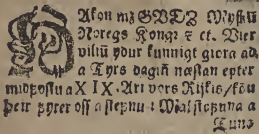 HAkon mz GVDZ Myskū
Noregs Kongr ꝛ ct. Vier
viliū ydur kunnigt giora ad,
a Tyrs dagiñ næstan epter
midfostu a XIX. Ari vors Rijkis, kōu
þeir fyrer oss a stefnu i
Lunz